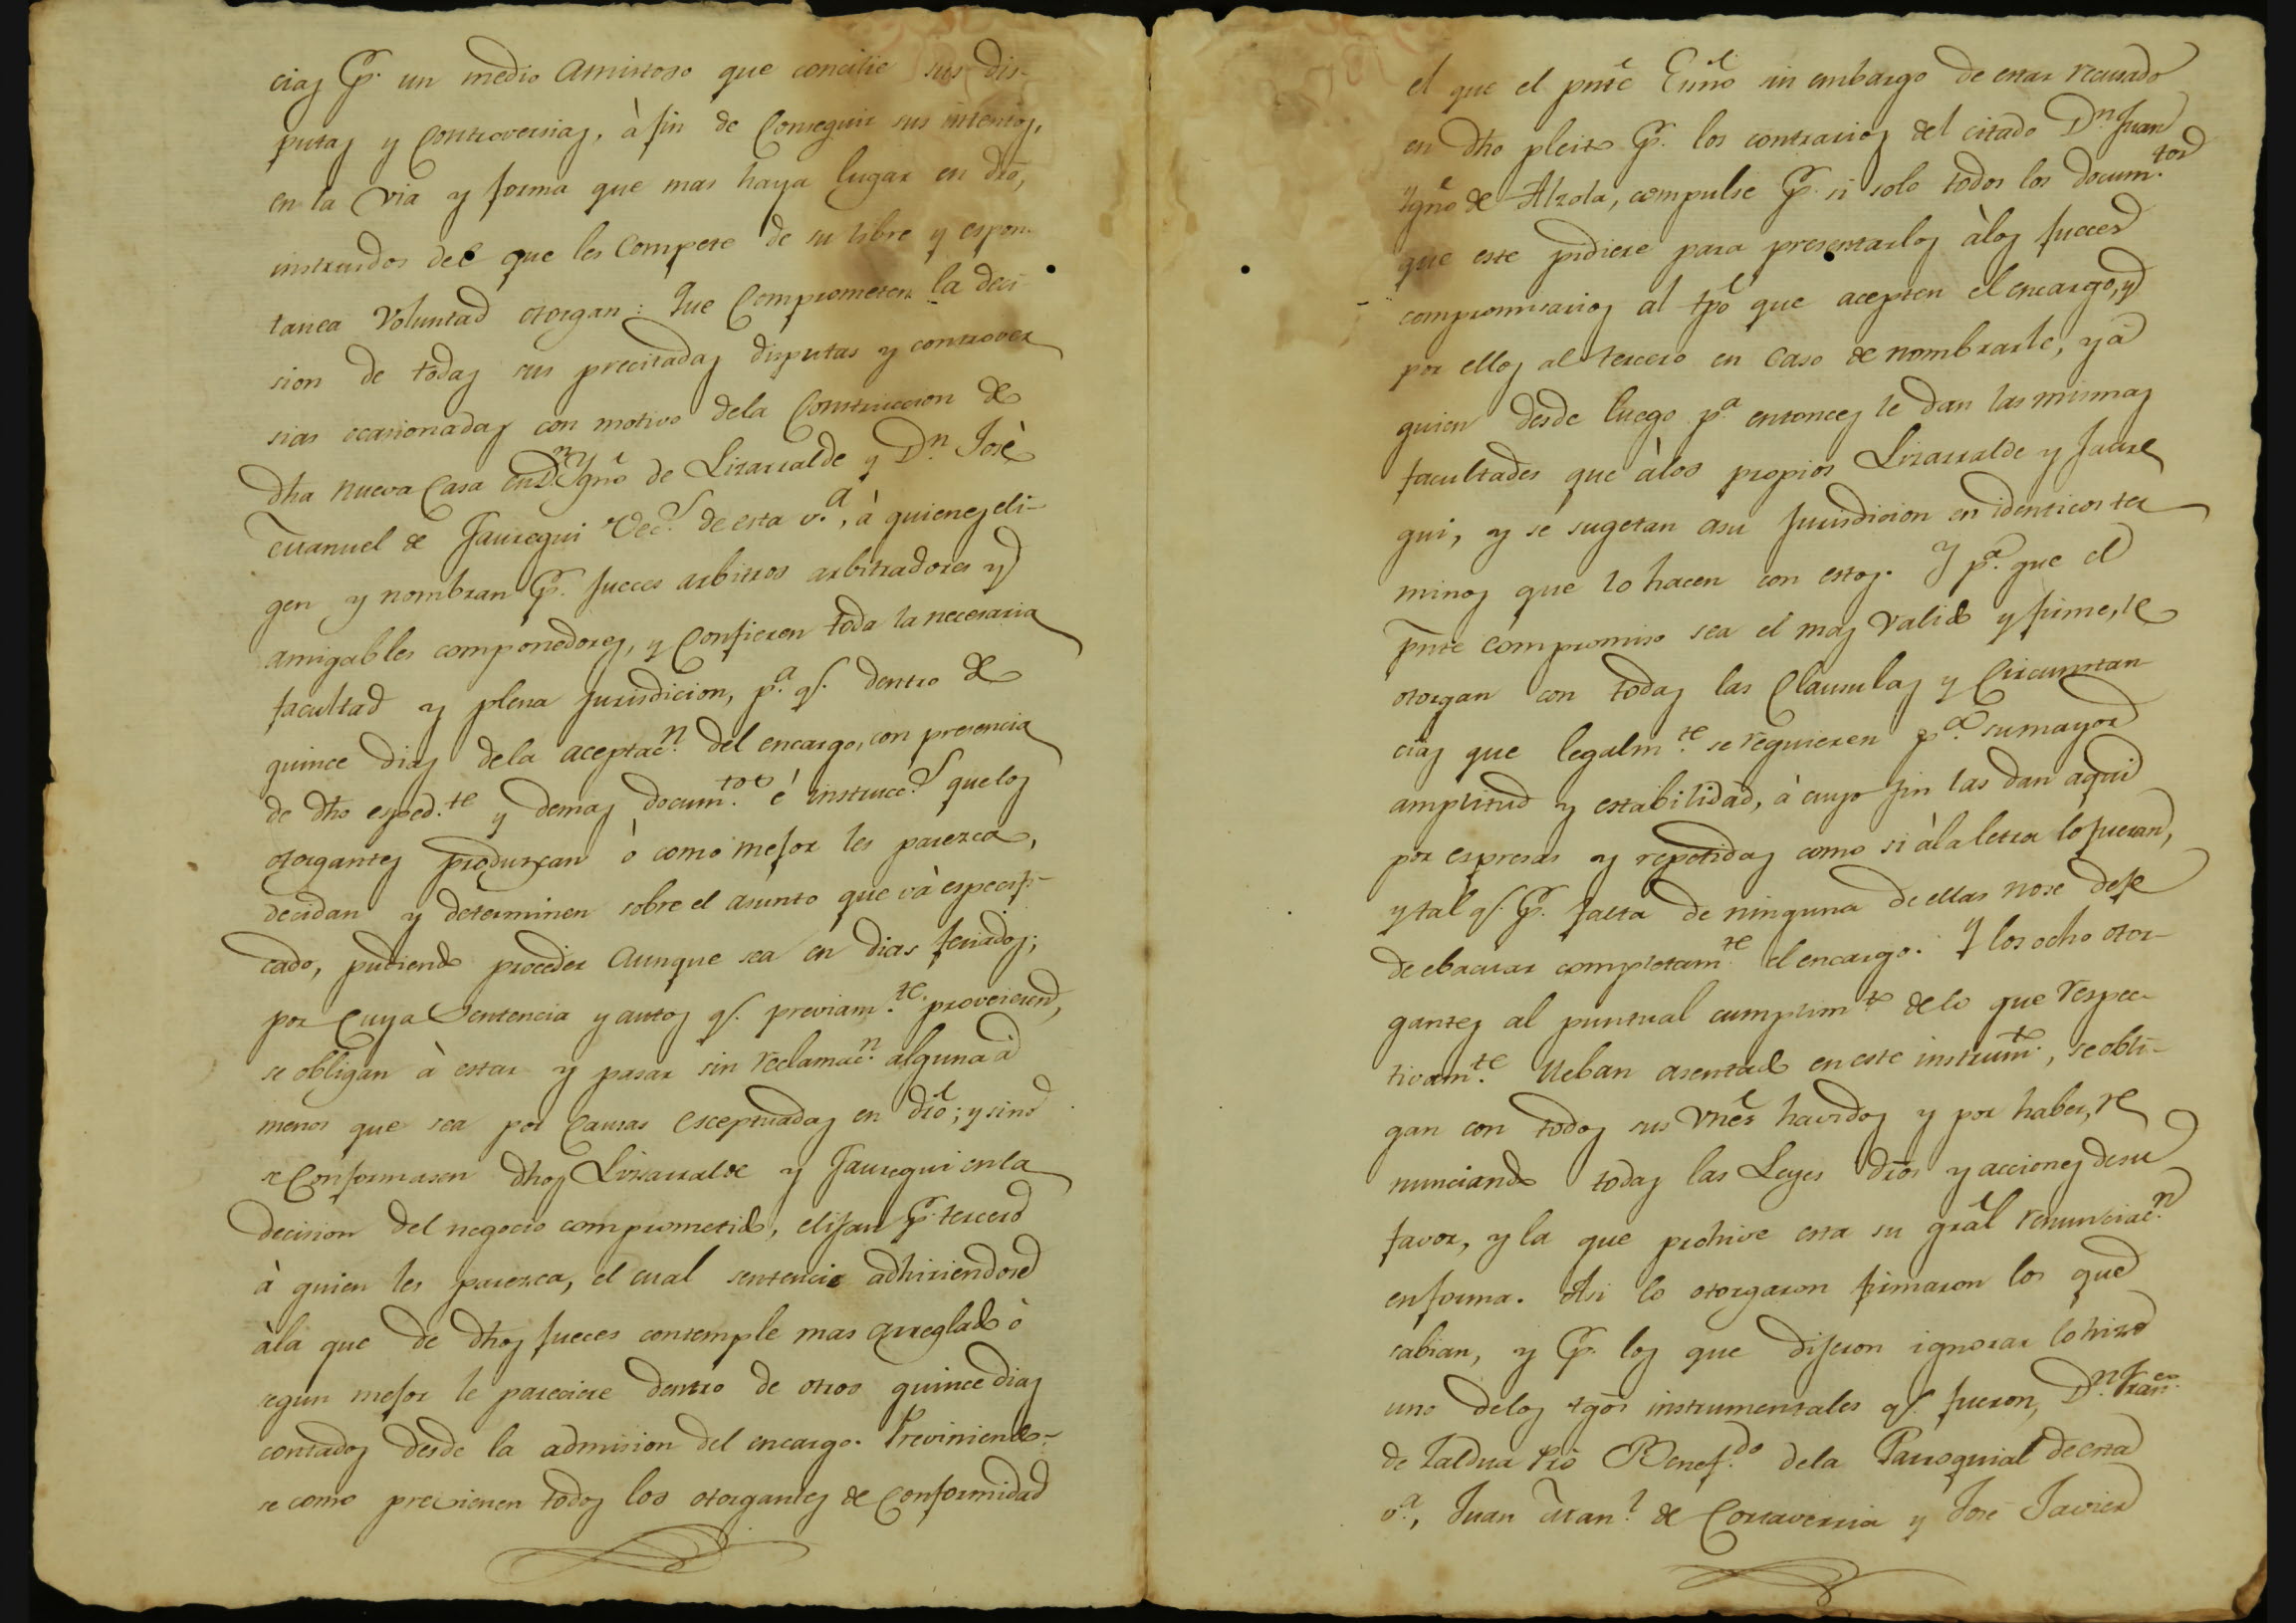 cias pr. un medio amistoso que concilie sus dis-
putas y controversias, à fin de conseguir sus intentos,
en la via y forma que mas haya lugar en dro,
instruidos del que les compete de su libre y espon-
tanea voluntad otorgan: Que comprometen la deci-
sion de todas sus precitadas disputas y controver
sias ocasionadas con motivo dela construccion de
dha nueva casa en Dn. Ygno de Lizarralde y Dn. José
Manuel de Jauregui vecs. de esta v.a, à quienes eli-
gen y nombran pr. jueces arbitros arbitradores y
amigables componedores, y confieren toda la necesaria
facultad y plena jurisdicion, p.a q.e dentro de
quince dias dela aceptac.n del encargo, con presencia
de dho esped.te y demas docum.tos é instrucc.s que los
otorgantes produzcan ò como mejor les parezca,
decidan y determinen sobre el asunto que và especifi-
cado, pudiendo proceder aunque sea en dias feriados;
por cuya sentencia y autos q.e previam.te proveieren,
se obligan à estar y pasar sin reclamac.n alguna à
menos que sea por causas esceptuadas en dro; y sino
se conformasen dhos Lizarralde y Jauregui en la
decision del negocio comprometido, elijan pr. tercero
à quien les parezca, el cual sentencie adhiriendose
àla que de dhos jueces contemple mas arreglado ò
segun mejor le pareciere dentro de otros quince dias
contados desde la admision del encargo. Previniendo-
se como previenen todos los otorgantes de conformidad
el que el pnte Esno sin embargo de estar recusado
en dho pleito pr. los contrarios del citado Dn. Juan
Ygno de Alzola, compulse pr. si solo todos los docum.tos
que este pidiere para presentarlos àlos jueces
compromisarios al tpo que acepten el encargo, y
por ellos al tercero en caso de nombrarle, y à
quien desde luego p.a entonces le dan las mismas
facultades que àlos propios Lizarralde y Jaure
gui, y se sugetan asu jurisdicion en identicos ter
minos que lo hacen con estos. Y p.a que el
pnte compromiso sea el mas valido y firme, le
otorgan con todas las clausulas y circunstan
cias que legalm.te se requieren p.a su mayor
amplitud y estabilidad, à cuyo fin las dan aqui
por espresas y repetidas como si àla letra lo fueran,
y tal q.e pr. falta de ninguna de ellas no se deje
de ebacuar completam.te el encargo. Y los ocho otor-
gantes al puntual cumplim.to de lo que respec-
tivam.te lleban asentado en este instrum.to, se obli-
gan con todos sus vnes havidos y por haber, re
nunciando todas las Leyes dros y acciones de su
favor, y la que prohive esta su gral renunciac.n
en forma. Asi lo otorgaron firmaron los que
sabian, y pr. los que dijeron ignorar lo hizo
uno delos tgos instrumentales q.e fueron, Dn. Fran.co
de Zaldua Pro Benef.do dela Parroquial de esta
v.a, Juan Man.l de Cortaverria y José Javier